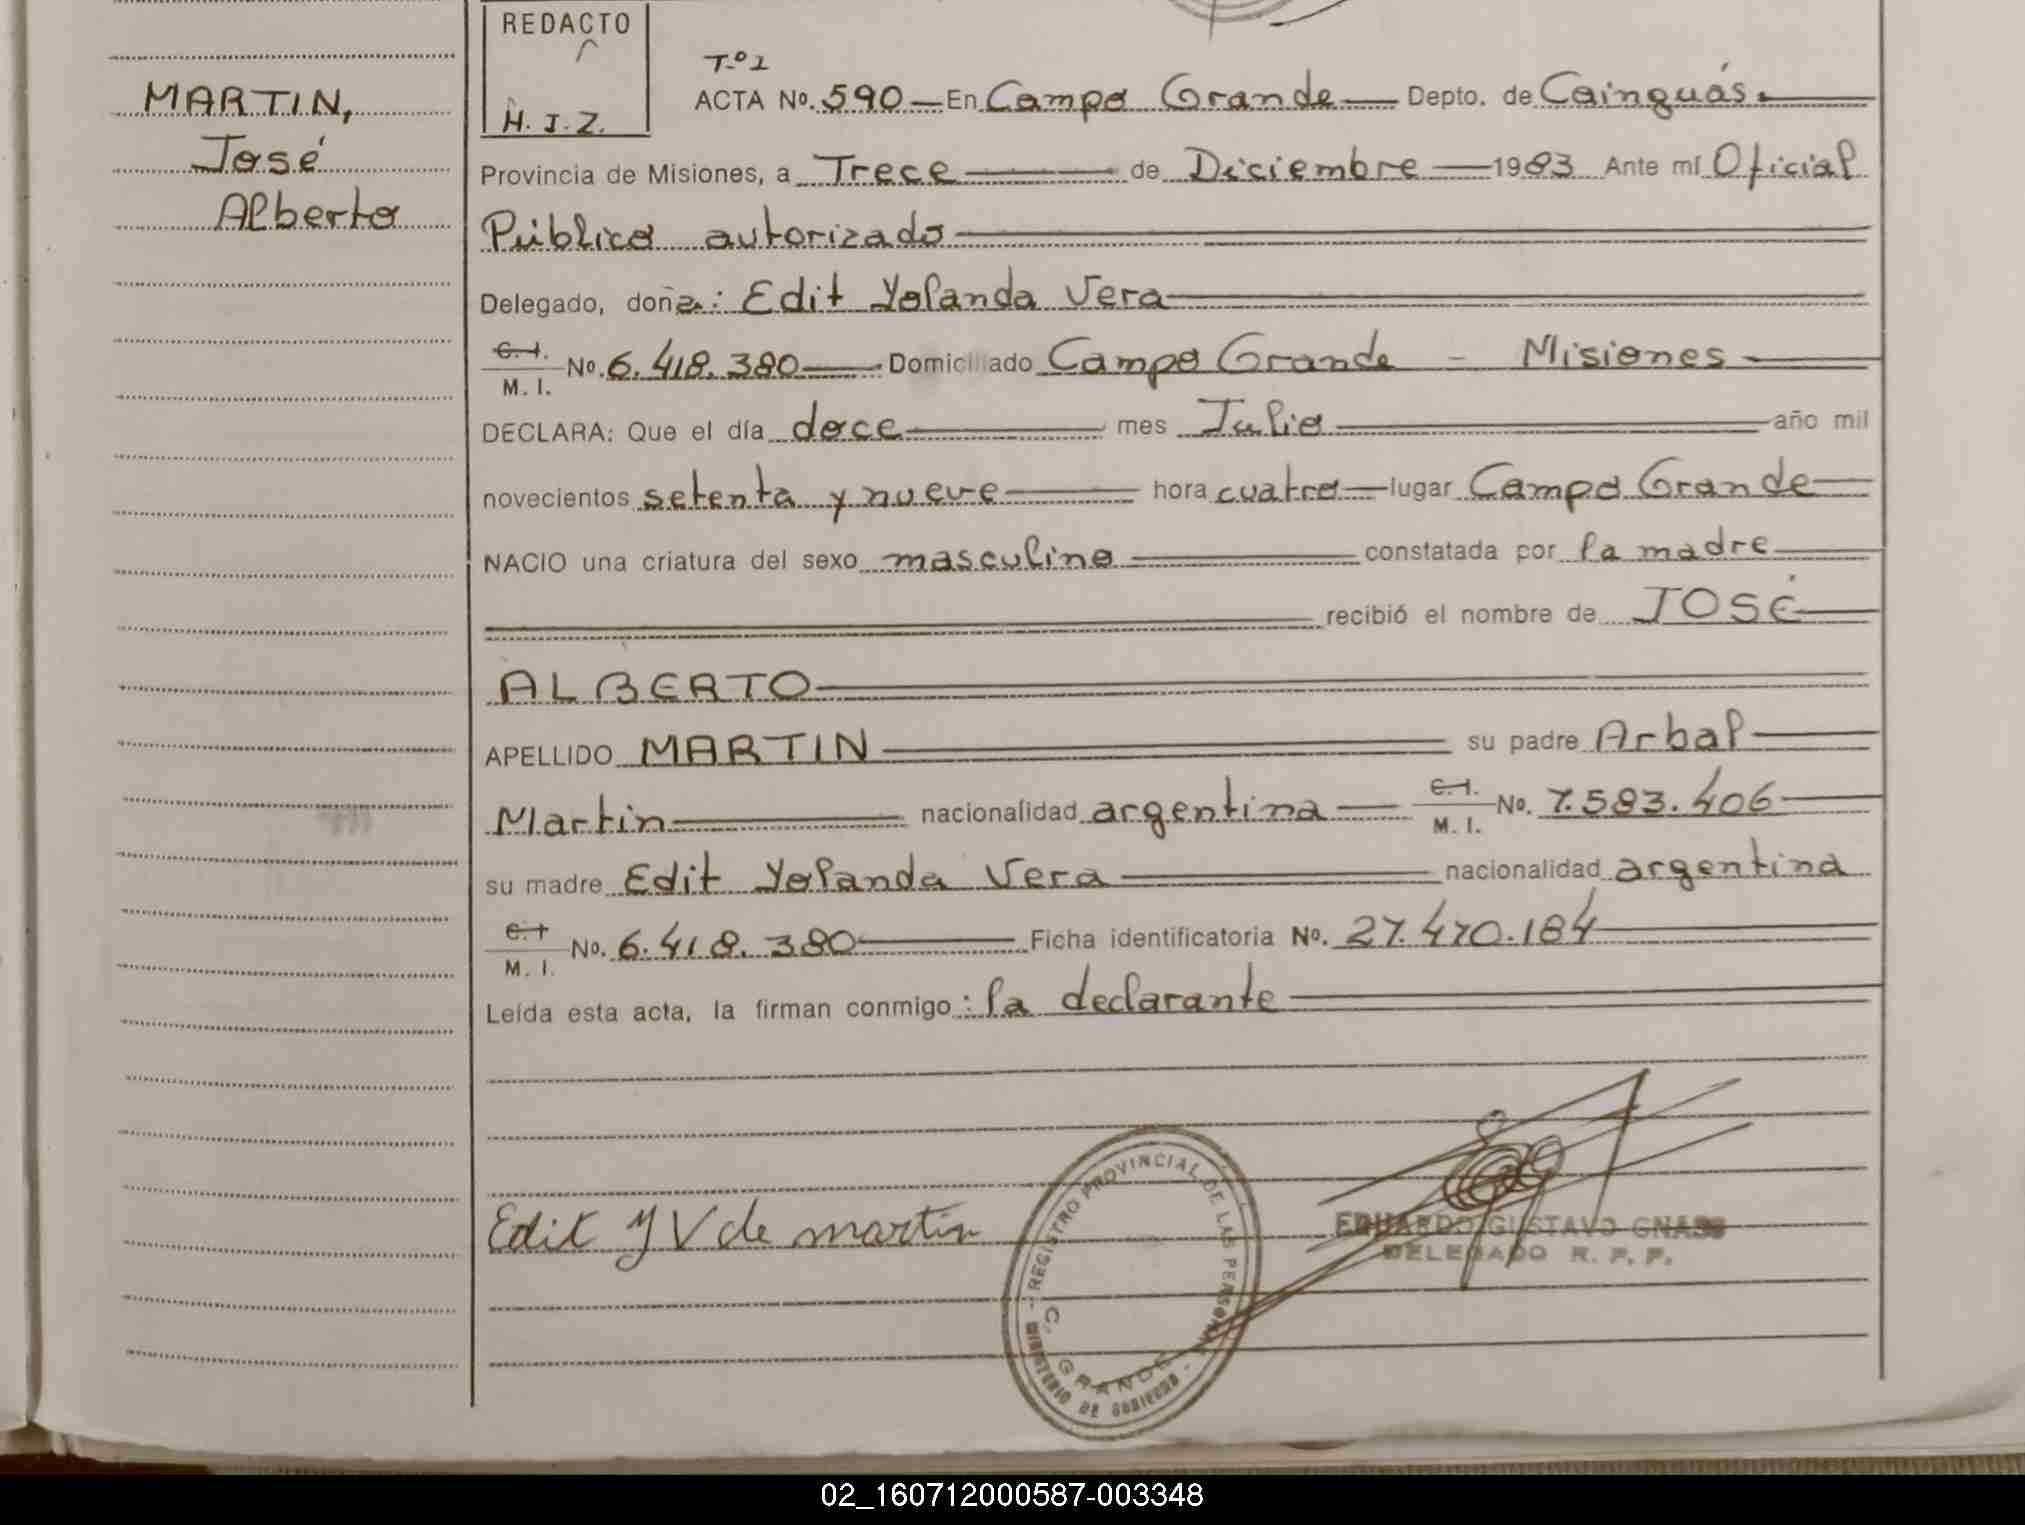 MARTIN,
José
Alberto
REDACTO
H. J. Z.
T.º 1
ACTA Nº. 590 En Campo Grande Depto. de Cainguás.
Provincia de Misiones, a Trece de Diciembre 1983 Ante mí Oficial
Público autorizado
Delegado, doña: Edit Yolanda Vera
C. I.
M. I. Nº. 6.418.380 Domiciliado Campo Grande - Misiones
DECLARA: Que el día doce mes Julio año mil
novecientos setenta y nueve hora cuatro lugar Campo Grande
NACIO una criatura del sexo masculino constatada por la madre
recibió el nombre de JOSÉ
ALBERTO
APELLIDO MARTIN su padre Arbal
Martin nacionalidad argentina C. I. M. I. Nº. 7.583.406
su madre Edit Yolanda Vera nacionalidad argentina
C. I
M. I. Nº. 6.418.380 Ficha identificatoria Nº. 27.470.184
Leída esta acta, la firman conmigo: la declarante
Edit Y V de martin
REGISTRO PROVINCIAL DE LAS PERSONAS
C. GRANDE
MINISTERIO DE GOBIERNO
EDUARDO GUSTAVO GNASS
DELEGADO R. P. P.
02_160712000587-003348